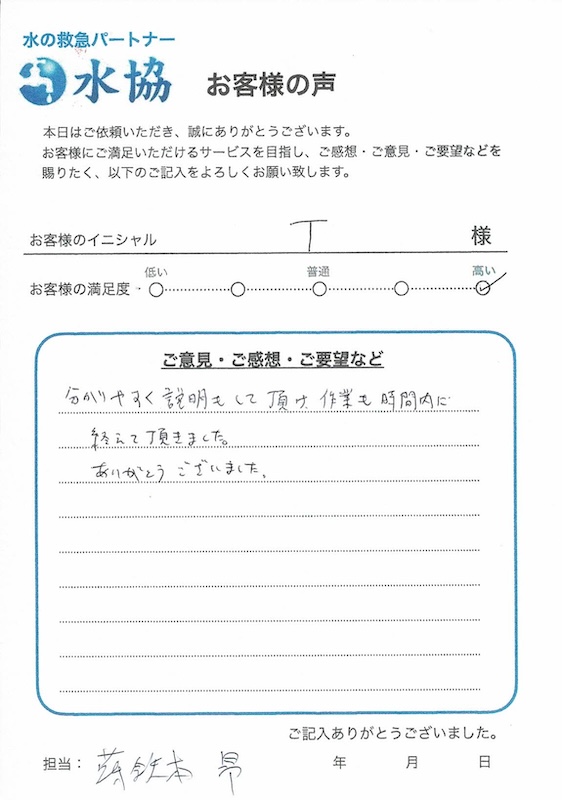 水の救急パートナー
水協 お客様の声
本日はご依頼いただき、誠にありがとうございます。
お客様にご満足いただけるサービスを目指し、ご感想・ご意見・ご要望などを
賜りたく、以下のご記入をよろしくお願い致します。
お客様のイニシャル T 様
低い 普通 高い
お客様の満足度
ご意見・ご感想・ご要望など
分かりやすく説明もして頂け、作業も時間内に
終えて頂きました。
ありがとうございました。
ご記入ありがとうございました。
担当： 本 昴 年 月 日